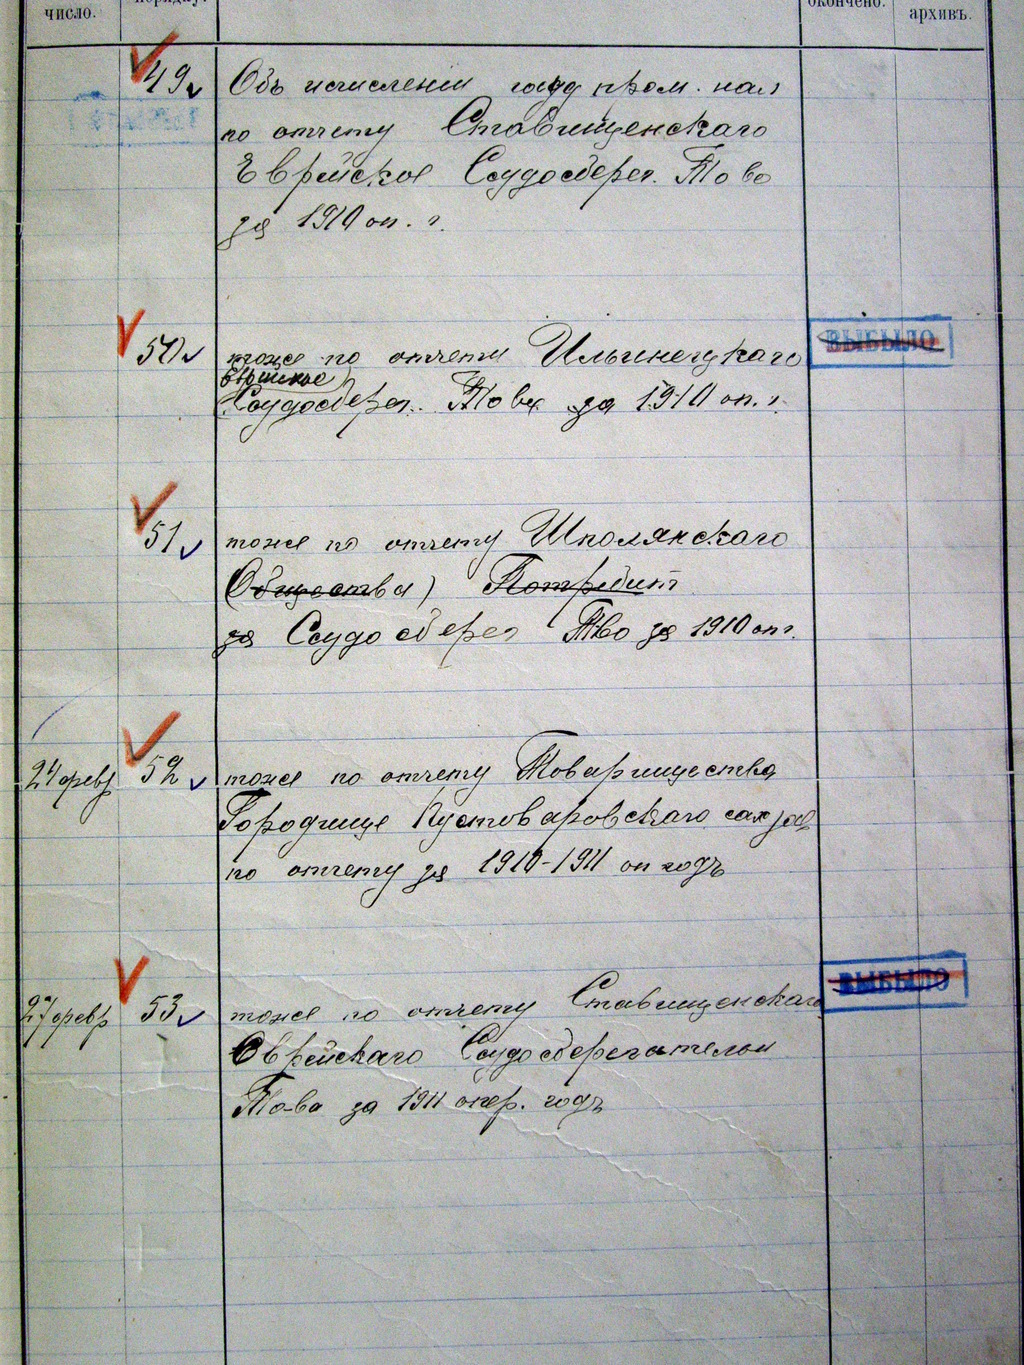 число.
порядку.
окончено.
архивъ.
49
Объ исчислении госуд пром. нал
по отчету Ставищенскаго
Еврейское Ссудосберег. Т во
за 1910 оп. г.
50
тоже по отчету
Еврейское
Ссудосберег. Т ва за 1910 оп. г.
ВЫБЫЛО
51
тоже по отчету Шполянскаго
(Общества) Потребит
за Ссудо сберег Т-во за 1910 оп г.
24 февр
52
тоже по отчету Товарищества
Городище Пустоваровскаго сах зав
по отчету за 1910-1911 оп годъ
27 февр
53
тоже по отчету Ставищенскаго
Еврейскаго Ссудосберегательн
То-ва за 1911 опер. годъ
ВЫБЫЛО